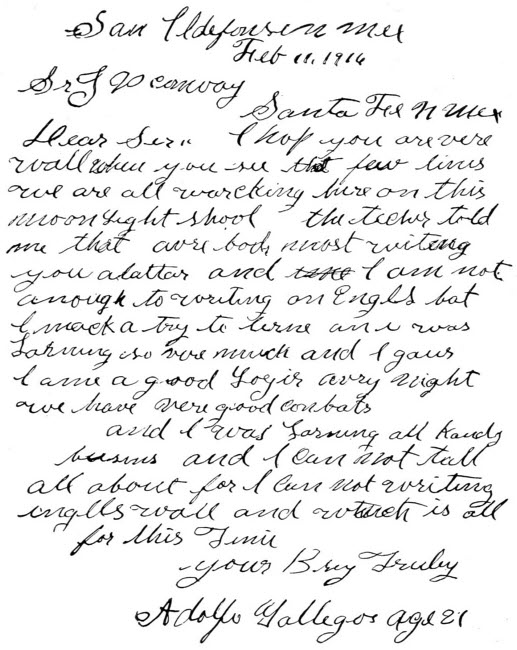 San Ildefonson mex
Feb 11, 1916
Sr J J conway
Santa Fee N mex
Dear Ser.. I hop you are vere
wall when you see that few lines
we are all warcking hire on this
moonlight shool the techer told
me that avre body most writeng
you a lattar and I am not
anough to writing on Engls bat
I mack a try to lerne an i was
Larning so vre much and I gaus
I ame a good Logir avry night
we have vere good conbats
and I was Larning all Kands
busins and I can not tall
all about for I can not writing
inglls wall and wtuch is all
for this Time
your Brey Truley
Adolfo Gallegos age 21